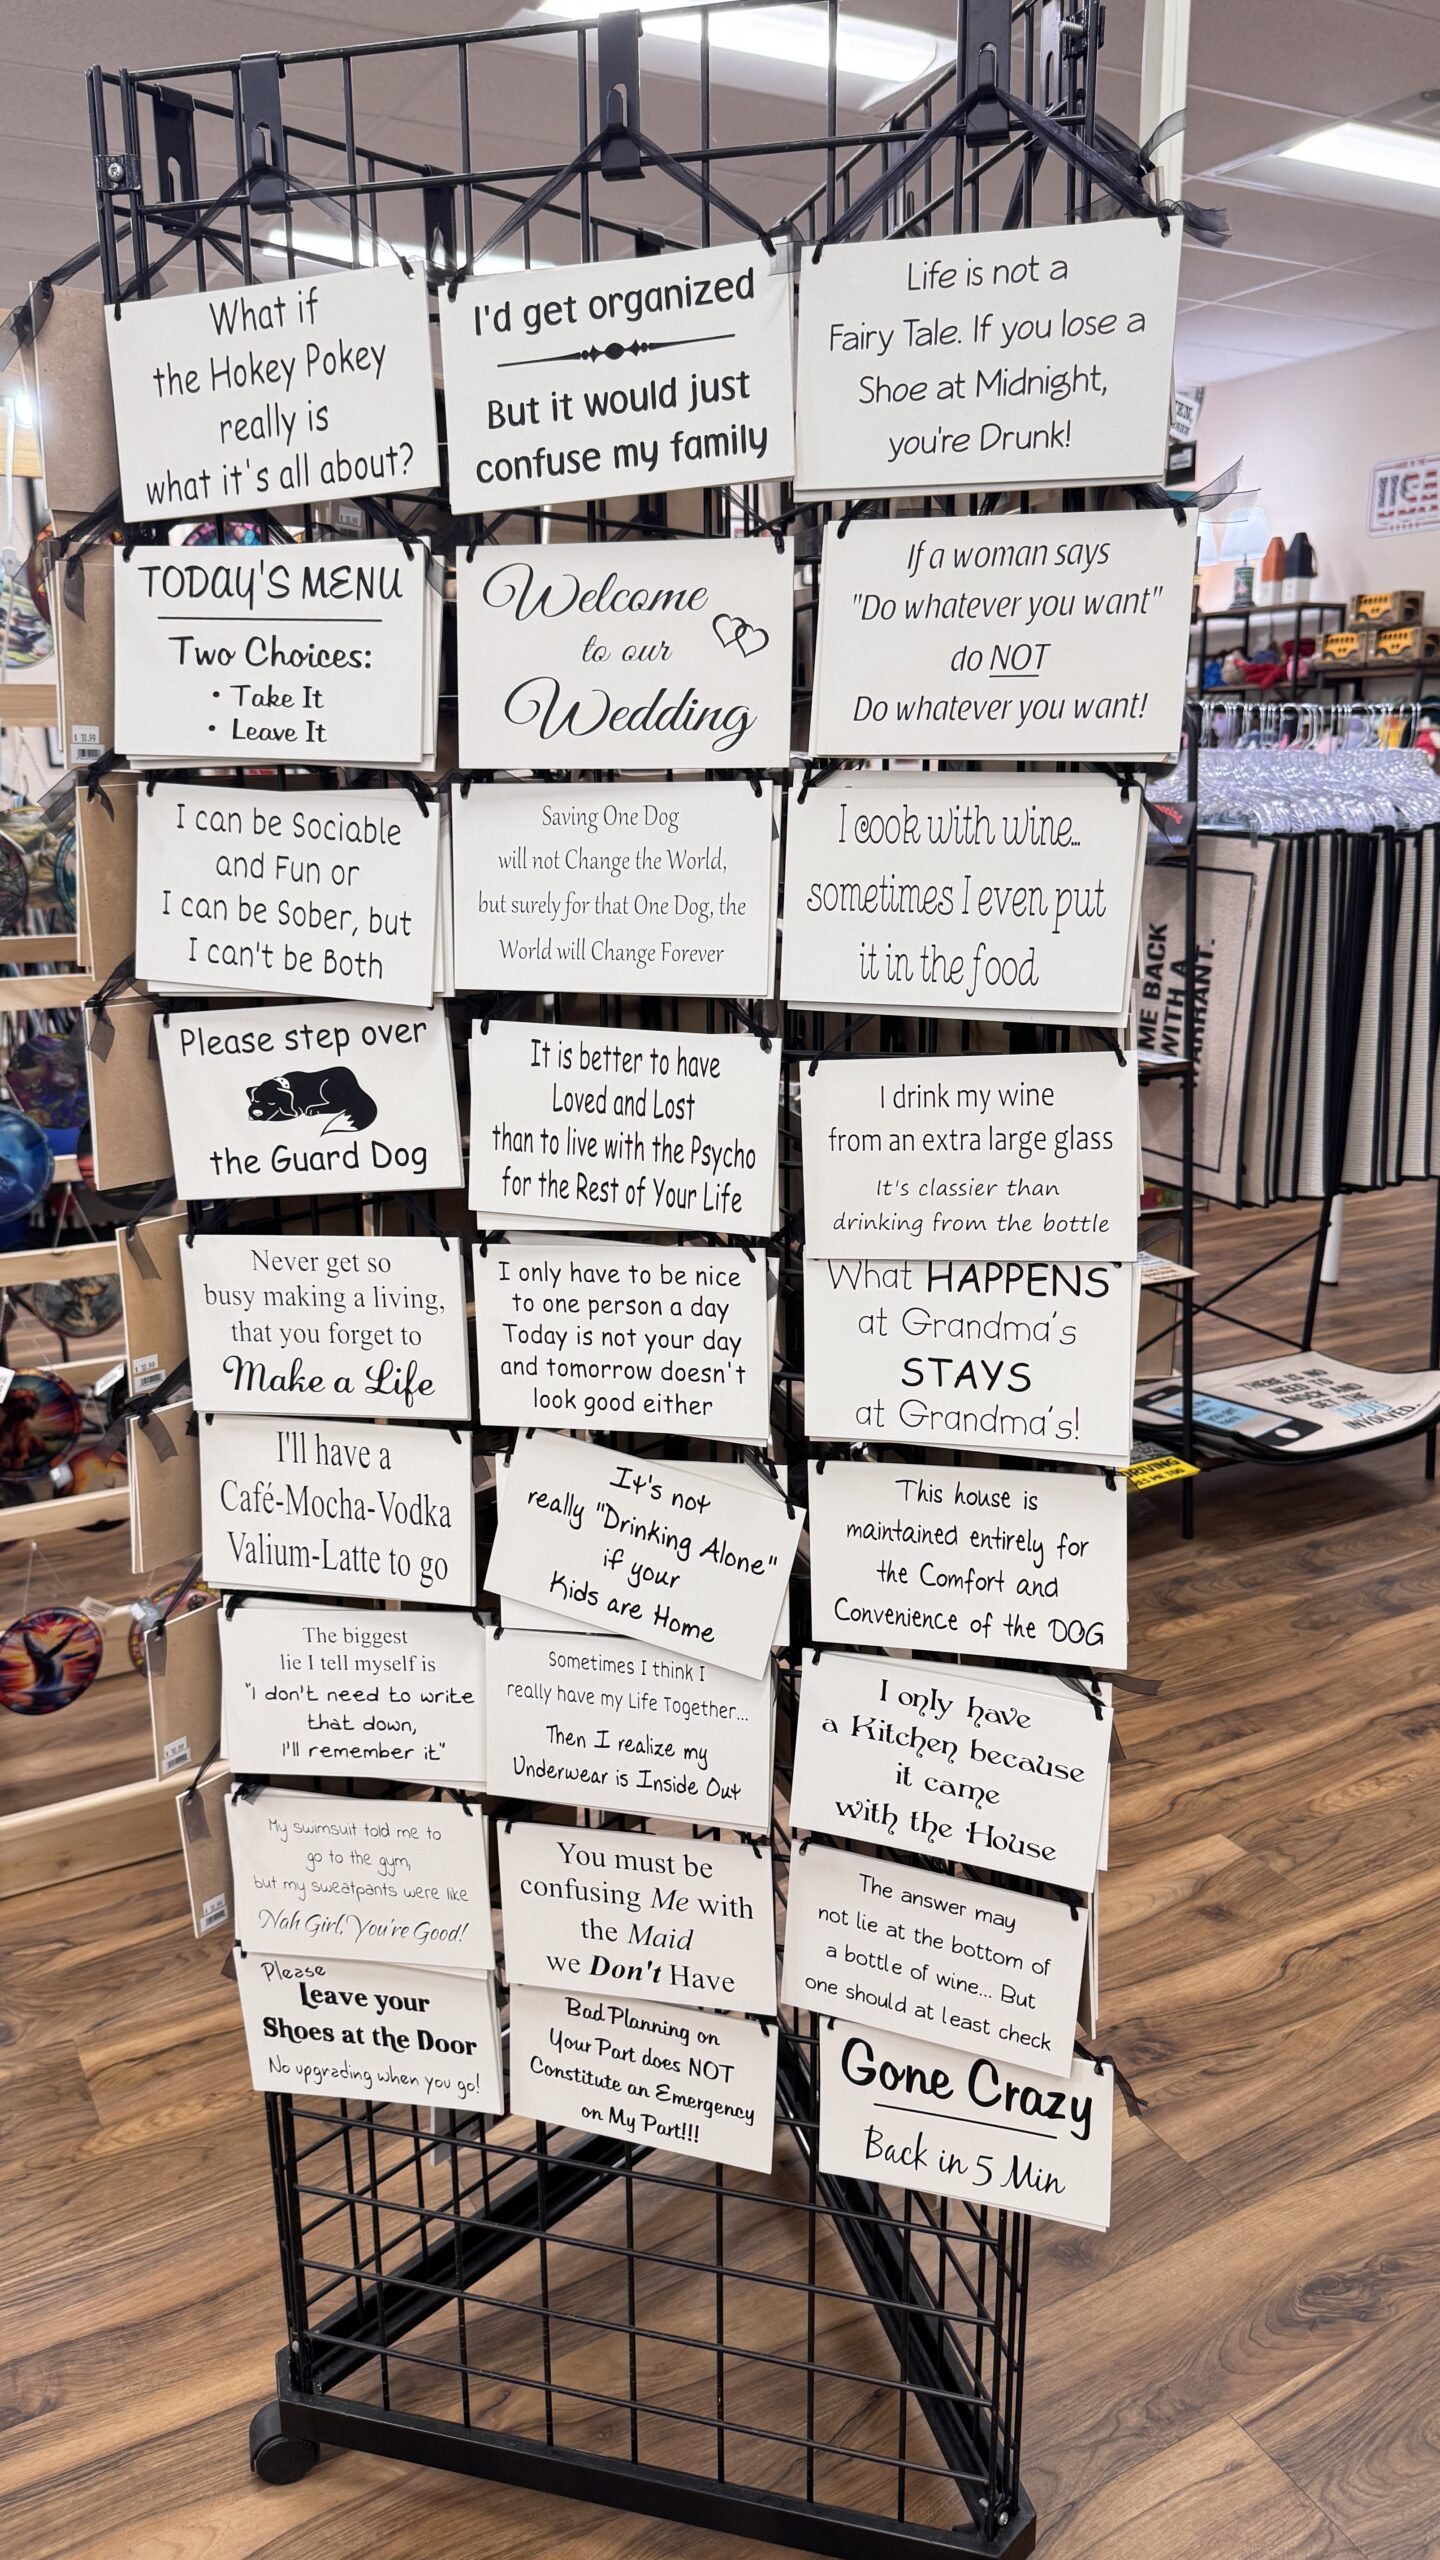 What if
the Hokey Pokey
really is
what it's all about?
I'd get organized
But it would just
confuse my family
Life is not a
Fairy Tale. If you lose a
Shoe at Midnight,
you're Drunk!
TODAY'S MENU
Two Choices:
• Take It
• Leave It
Welcome
to our
Wedding
If a woman says
"Do whatever you want"
do NOT
Do whatever you want!
I can be Sociable
and Fun or
I can be Sober, but
I can't be Both
Saving One Dog
will not Change the World,
but surely for that One Dog, the
World will Change Forever
I cook with wine...
sometimes I even put
it in the food
Please step over
the Guard Dog
It is better to have
Loved and Lost
than to live with the Psycho
for the Rest of Your Life
I drink my wine
from an extra large glass
It's classier than
drinking from the bottle
Never get so
busy making a living,
that you forget to
Make a Life
I only have to be nice
to one person a day
Today is not your day
and tomorrow doesn't
look good either
What HAPPENS
at Grandma's
STAYS
at Grandma's!
I'll have a
Café-Mocha-Vodka
Valium-Latte to go
It's not
really "Drinking Alone"
if your
Kids are Home
This house is
maintained entirely for
the Comfort and
Convenience of the DOG
The biggest
lie I tell myself is
"I don't need to write
that down,
I'll remember it"
Sometimes I think I
really have my Life Together...
Then I realize my
Underwear is Inside Out
I only have
a Kitchen because
it came
with the House
My swimsuit told me to
go to the gym,
but my sweatpants were like
Nah Girl, You're Good!
You must be
confusing Me with
the Maid
we Don't Have
The answer may
not lie at the bottom of
a bottle of wine... But
one should at least check
Please
Leave your
Shoes at the Door
No upgrading when you go!
Bad Planning on
Your Part does NOT
Constitute an Emergency
on My Part!!!
Gone Crazy
Back in 5 Min
$ 10.99
USA
ME BACK
WITH A
THERE IS NO
NEED TO
KNOCK AND
GET THE
DOG
INVOLVED.